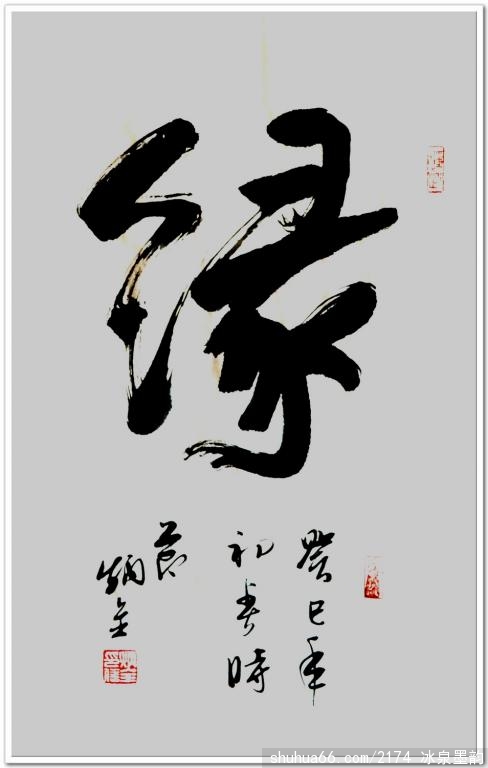 缘
癸巳年
初春時
節
炳全
shuhua66.com/2174 冰泉墨韵